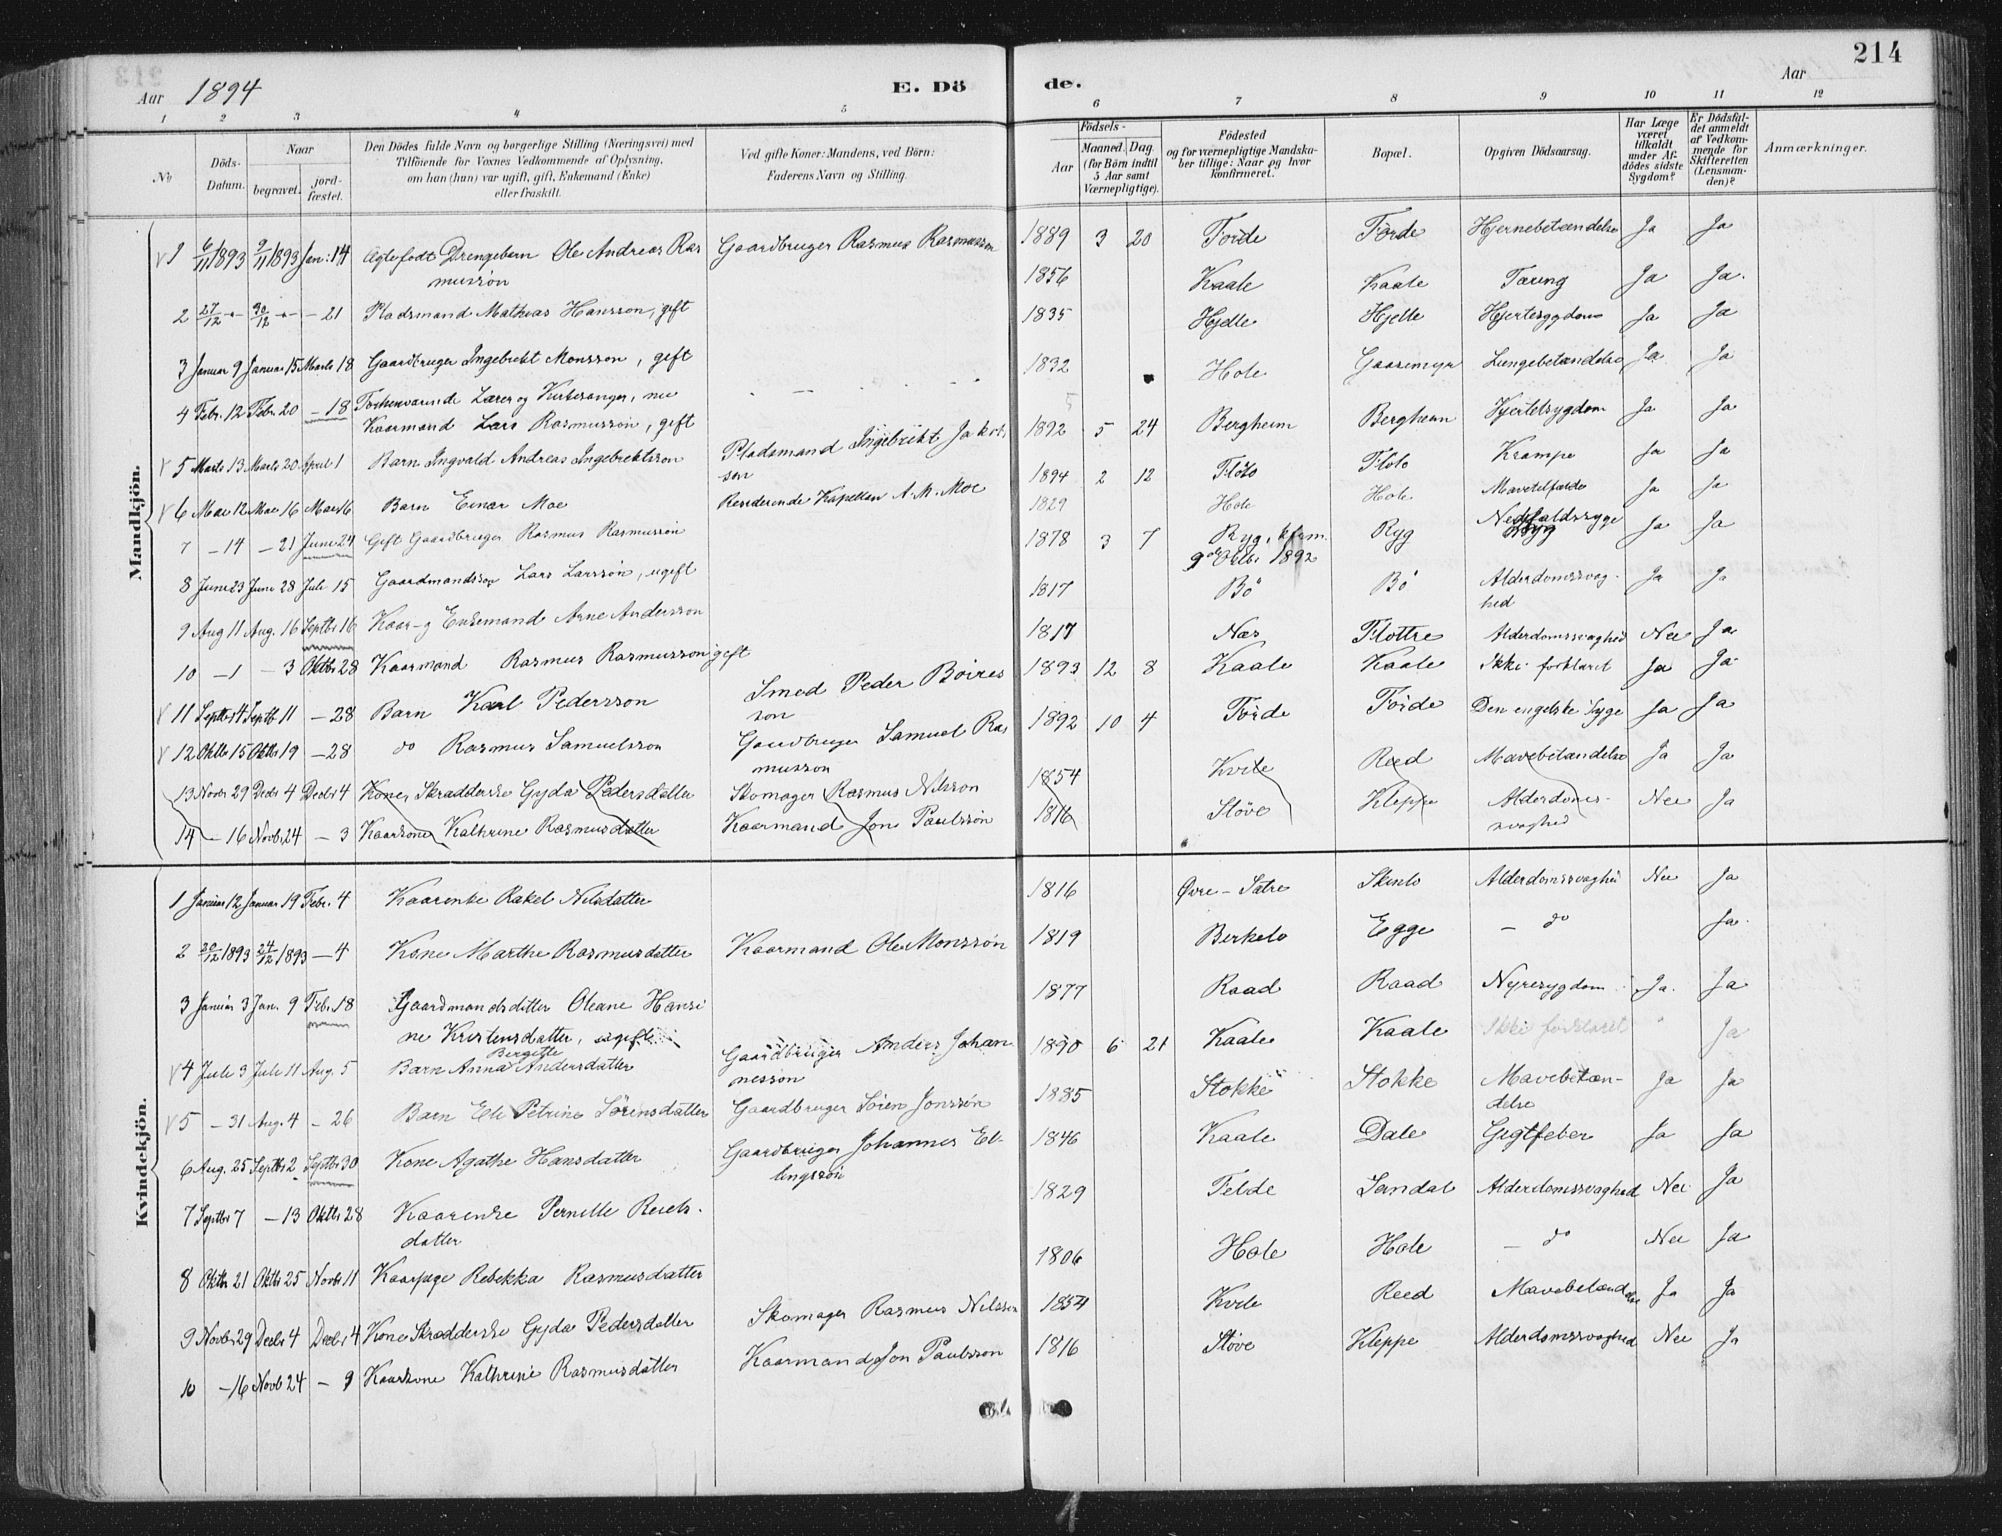 213
Aar 1894
E. Dö
de.
Aar
214
1 2 3 4 5 6 7 8 9 10 11 12
No
Döds-Datum.
Naar
begravet.
jord-fæstet.
Den Dödes fulde Navn og borgerlige Stilling (Næringsvei) med
Tilföiende for Voxnes Vedkommende af Oplysning,
om han (hun) var ugift, gift, Enkemand (Enke)
eller fraskilt.
Ved gifte Koner: Mandens, ved Börn:
Faderens Navn og Stilling.
Födsels-
Aar
Maaned. Dag.
(for Börn indtil
5 Aar samt
Værnepligtige).
Födested
og for værnepligtige Mandska-
ber tillige: Naar og hvor
konfirmeret.
Bopæl.
Opgiven Dödsaarsag.
Har Læge
været
tilkaldt
under Af-
dödes sidste
Sygdom?
Er Dödsfal-
det anmeldt
af Vedkom-
mende for
Skifteretten
(Lensman-
den)?
Anmærkninger.
Mandkjön.
1 6/11 1893 9/11 1893 Jan: 14 Ægtefødt Drengebarn Ole Andreas Ras Gaardbruger Rasmus Rasmusson 1889 3 20 Førde Førde Hjernebetændelse Ja Ja
mussøn
2 27/12 30/12 - 21 Pladsmand Mathias Hansson, gift 1856 Kaale Kaale Tæring Ja Ja.
3 Januar 9 Januar 15 Marts 18 Gaardbruger Ingebrikt Monsson, gift 1835 Hjelle Hjelle Hjertesygdom Ja Ja
4 Febr. 12 Febr. 20 - 18 Forhenværende Lærer og Kirkesanger, nu 1832 Hole Gaasemyr Lungebetændelse Ja Ja
Kaarmand Lars Rasmusson, gift
5 Marts 13 Marts 20 April 1 Barn Ingvald Andreas Ingebriktsson Pladsmand Ingebrikt Jakob 1892 5 24 Bergheim Bergheim Hjertesygdom Ja Ja
son
6 Mai 12 Mai 16 Mai 16 Barn Einar Moe Residerende Kapellan A. M. Moe 1894 2 12 Floto Floto Krampe Ja Ja
7 - 14 - 21 Juni 24 Gift Gaardbruger Rasmus Rasmusson 1829 Hole Hole Mavetilfælde Ja Ja
8 Juni 23 Juni 28 Juli 15 Gaardmandssøn Lars Larssøn, ugift 1878 3 7 Ryg, kfirm. Ryg Nedfaldssyge Ja Ja
9de Oktbr. 1892
9 Aug 11 Aug. 16 Septbr 16 Kaar- og Enkemand Arne Andersson 1817 Bø Bø Alderdomssvag- Ja Ja
hed
10 - 1 - 3 Oktbr 28 Kaarmand Rasmus Rasmusson gift 1817 Nes Flottre Alderdomssvaghed Nei Ja
11 Septbr 4 Septb 11 - 28 Barn Karl Pedersson Smed Peder Bøires 1893 12 8 Kaale Kaale Ikke forklaret Ja Ja
son
12 Oktbr 15 Oktbr 19 - 28 do Rasmus Samuelsson Gaardbruger Samuel Ras 1892 10 4 Førde Førde Den engelske Syge Ja Ja
musson
13 Novbr 29 Decbr 4 Decbr 4 Kone, Skrædderske Gyda Pedersdatter Skomager Rasmus Nilsson 1854 Kvile Reed Mavebetændelse Ja Ja
14 - 16 Novbr 24 - 3 Kaarkone Kathrine Rasmusdatter Kaarmand Jon Paulsson 1816 Støve Kleppe Alderdoms- Nei Ja
svaghed
Kvindekjön.
1 Januar 12 Januar 19 Febr. 4 Kaarenke Rakel Nilsdatter 1816 Øvre-Sætre Skinlo Alderdomssvaghed Nei Ja
2 20/12 1893 24/12 1893 - 4 Kone Marthe Rasmusdatter Kaarmand Ole Monssøn 1819 Berkelo Egge - do Ja.
3 Januar 3 Jan. 9 Febr. 18 Gaardmandsdatter Oleane Hansi 1877 Raad Raad Nyresygdom Ja. Ja
ne Kristensdatter, ugift
Bergitte
4 Juli 3 Juli 11 Aug. 5 Barn Anna Andersdatter Gaardbruger Anders Johan 1890 6 21 Kaale Kaale Ikke forklaret Ja
nesson
5 - 31 Aug. 4 - 26 Barn Eli Petrine Sørensdatter Gaardbruger Søren Jonssøn 1885 Stokke Stokke Mavebetæn- Ja Ja
delse
6 Aug. 25 Septbr 2 Septbr 30 Kone Agathe Hansdatter Gaardbruger Johannes El- 1846 Kaale Dale Gigtfeber Ja Ja
lingssøn
7 Septbr 7 - 13 Oktbr 28 Kaarenke Pernille Reiels- 1829 Felde Sandal Alderdomssvaghed Nei Ja
datter
8 Oktbr 21 Oktbr 25 Novbr 11 Kaarpige Rebekka Rasmusdatter 1806 Hole Hole - do Nei Ja
9 Novbr 29 Decbr 4 Decbr 4 Kone Skrædderske Gyda Pedersdatter Skomager Rasmus Nilsson 1854 Kvile Reed Mavebetændelse Ja Ja
10 - 16 Novb 24 - 9 Kaarkone Kathrine Rasmusdatter Kaarmand Jon Paulsson 1816 Støve Kleppe Alderdomssvaghed Nei Ja